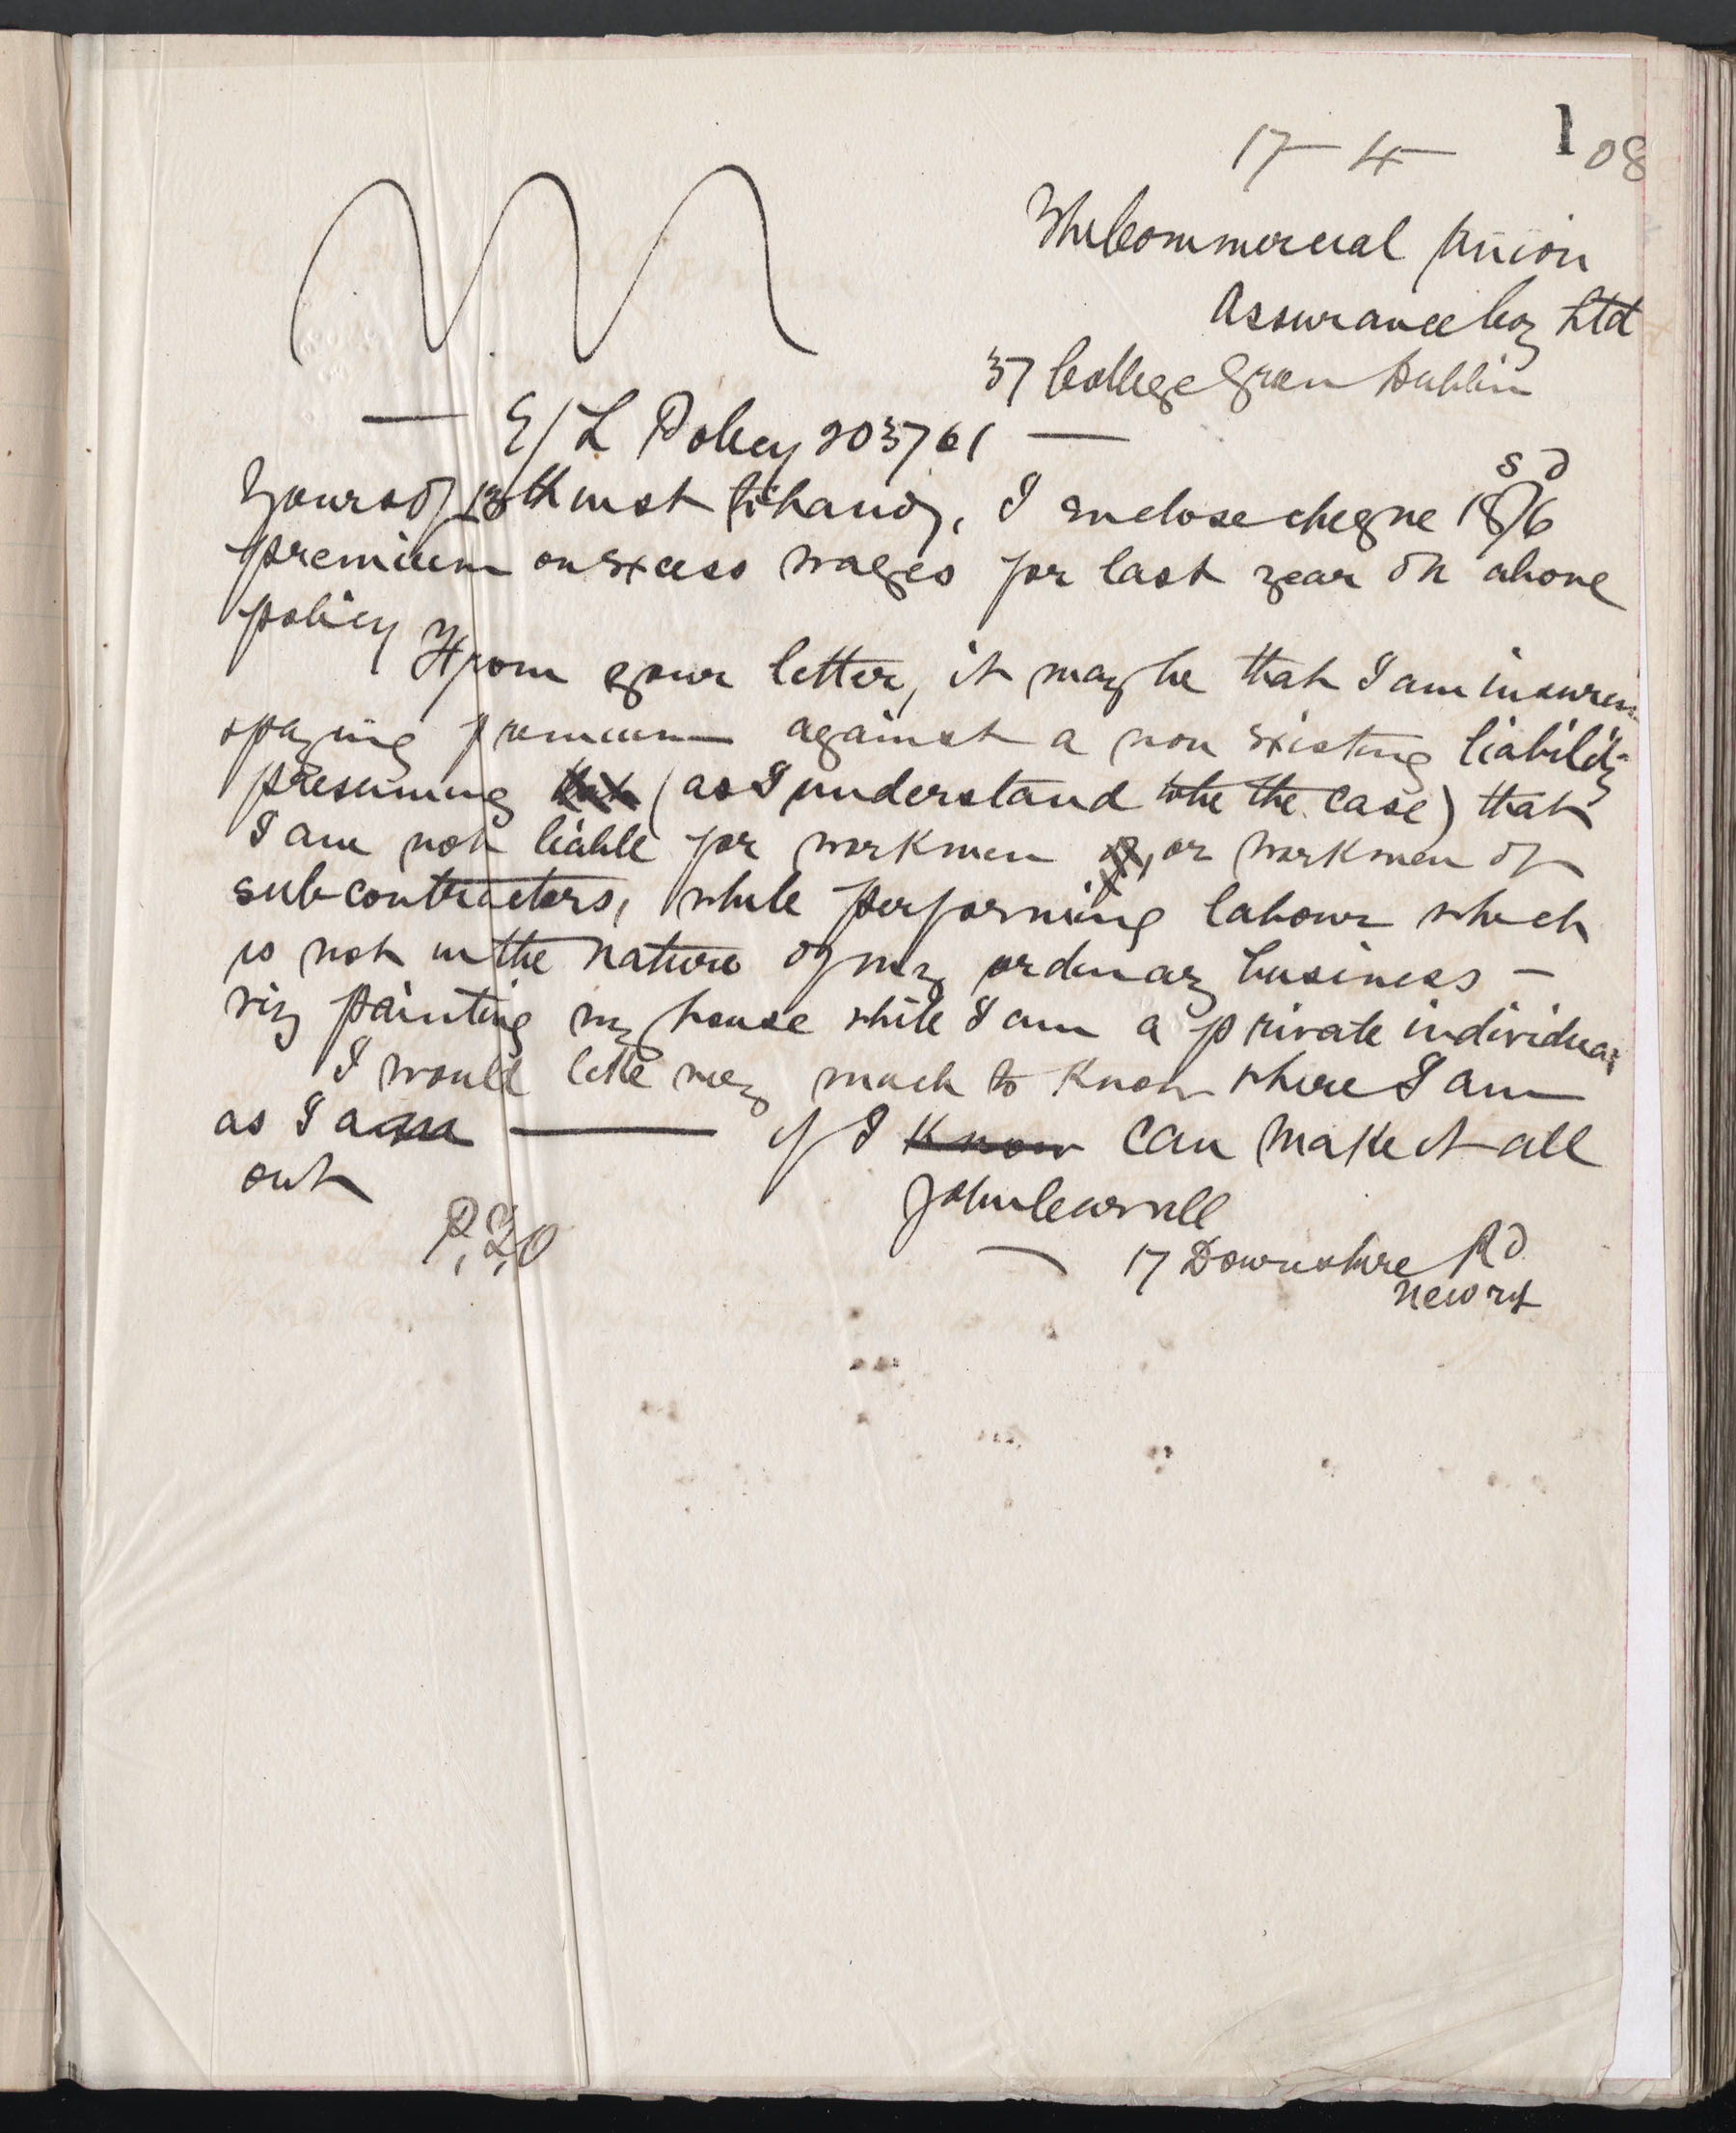 1
17 - 4 - 08
The Commercial Union
Assurance Coy Ltd
37 College Green Dublin
— E/L Policy 203761 —
s d
Yours of 13th inst to hand, I enclose cheque 18/6
premium on excess wages for last year on above
policy
From your letter, it may be that I am insuring
& paying premium against a non existing liability
presuming (as I understand to be the case) that
I am not liable for workmen, or workmen of
sub-contractors, while performing labour which
is not in the nature of my ordinary business —
viz painting my house while I am a private individual
I would like very much to know where I am
as I am ——— if I know can make it all
out
John
P.T.O
17 Downshire Rd
Newry